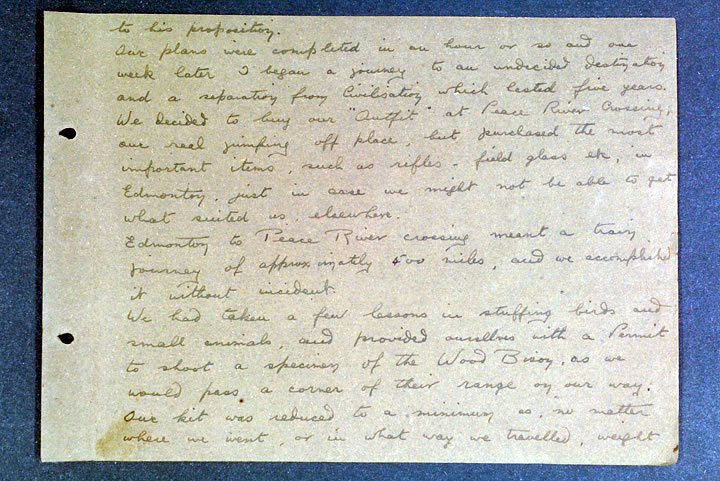 to his proposition.
Our plans were completed in an hour or so and one
week later I began a journey to an undecided destination
and a separation from Civilisation which lasted five years.
We decided to buy our "Outfit" at Peace River Crossing,
our real jumping off place, but purchased the most
important items, such as rifles - field glass etc, in
Edmonton, just in case we might not be able to get
what suited us, elsewhere.
Edmonton to Peace River crossing meant a train
journey of approximately 400 miles, and we accomplished
it without incident.
We had taken a few lessons in stuffing birds and
small animals, and provided ourselves with a Permit
to shoot a specimen of the Wood Bison, as we
would pass a corner of their range on our way.
Our kit was reduced to a minimum as, no matter
where we went, or in what way we travelled, weight